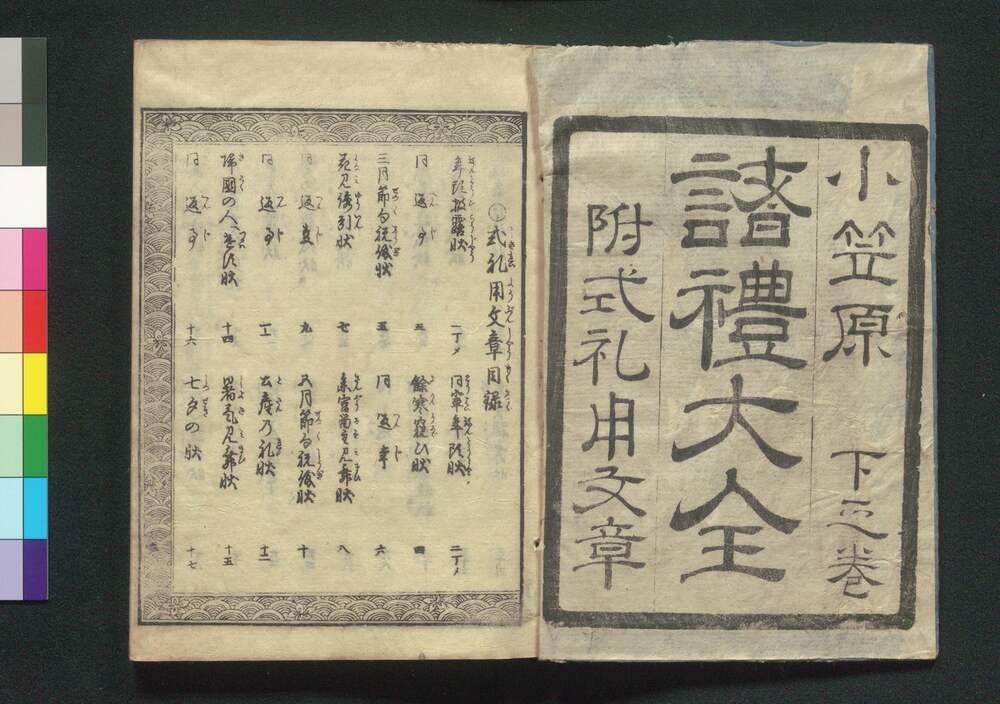 小笠原 下之巻
諸禮大全
附式礼用文章
式礼用文章目録
年頭披露状 二丁メ
同輩年頭状 二丁メ
同返事 三
餘寒窺ひ状 四
三月節句祝儀状 五
同返事 六
花見誘引状 七
八
同返事 九
五月節句祝儀状 十
同返事 十一
出産の礼状 十二
帰國の人へ遣す状 十四
暑気見舞状 十五
同返事 十六
七夕の状 十七